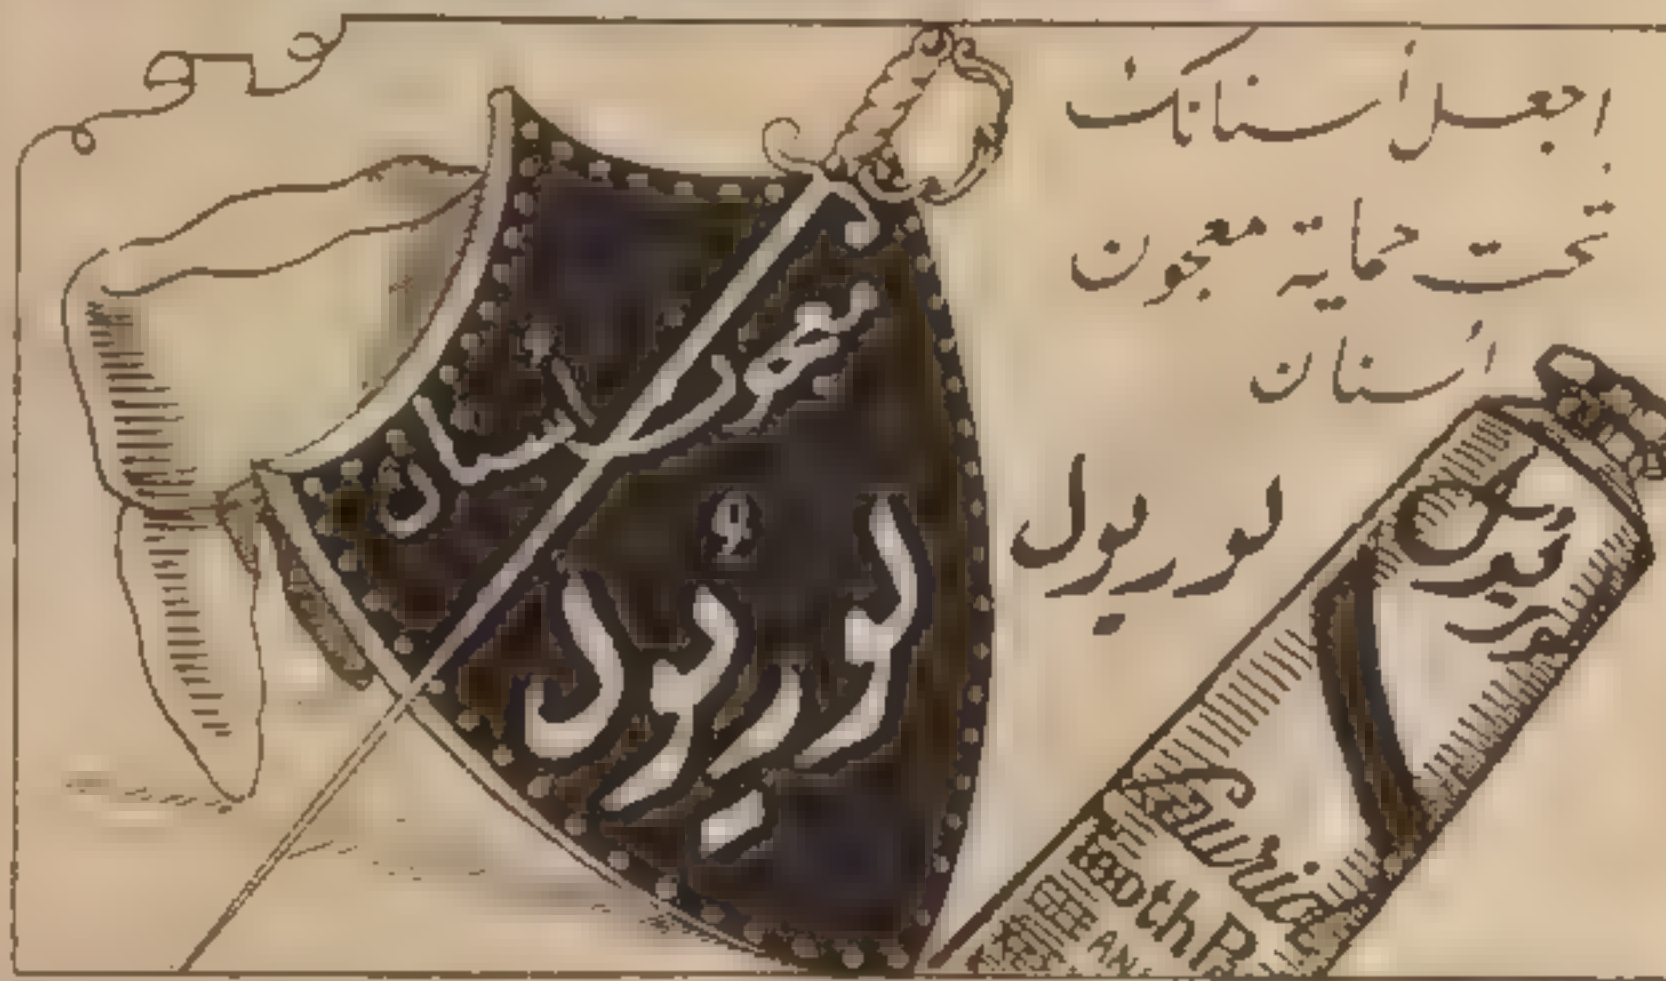 اجعل أسنانك
تحت حماية معجون
أسنان
لوريول
معجون اسنان
لوريول
معجون
لوريول
Lauriol
Tooth P
AN